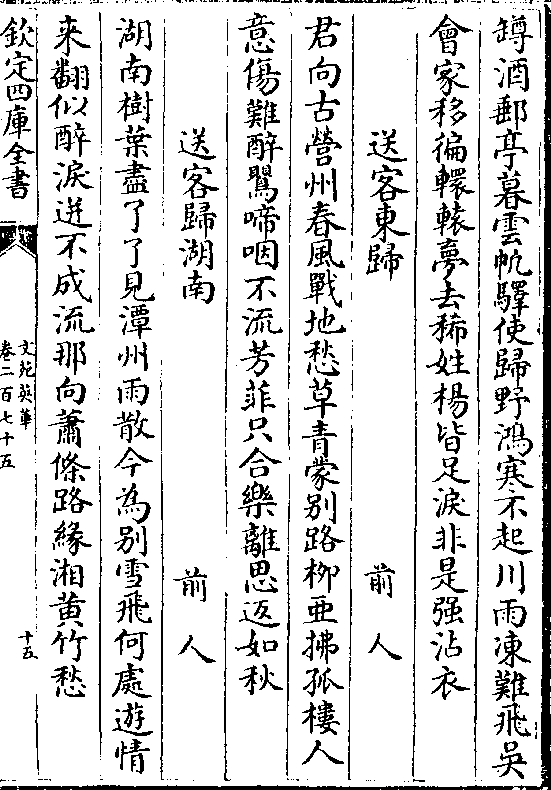 罇酒郵亭暮雲帆驛使歸野鴻寒不起川雨凍難飛吳
會家移徧轘轅夢去稀姓楊皆足淚非是强沾衣
送客東歸 前人
君向古營州春風戰地愁草青蒙别路柳亞拂孤樓人
意傷難醉鸎啼咽不流芳菲只合樂離思返如秋
送客歸湖南 前人
湖南樹葉盡了了見潭州雨散今為别雪飛何處遊情
来翻似醉淚迸不成流那向蕭條路緣湘黄竹愁
欽定四庫全書
文苑英華
卷二百七十五
十五